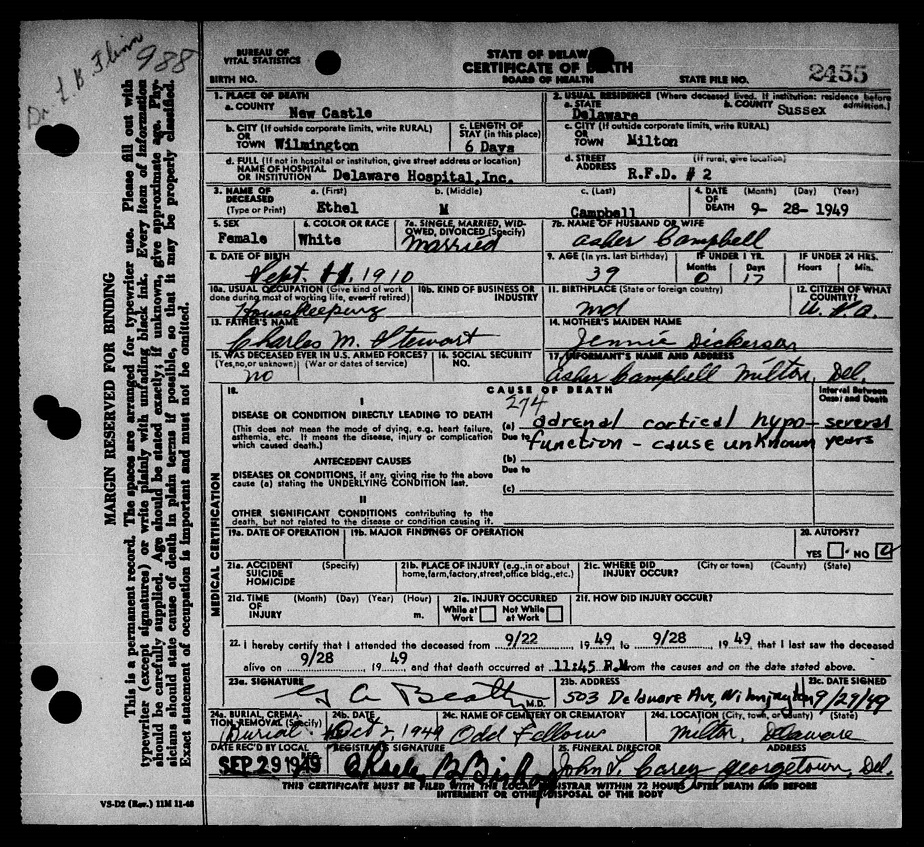 Dr. L B Flinn
988
MARGIN RESERVED FOR BINDING
This is a permanent record. The spaces are arranged for typewriter use. Please fill out with
typewriter (except signatures) or write plainly with unfading black ink. Every item of information
should be carefully supplied. Age should be stated exactly; if unknown, give approximate age. Phy-
sicians should state cause of death in plain terms if possible, so that it may be properly classified.
Exact statement of occupation is important and must not be omitted.
VS-D2 (Rev.) 11M 11-48
BUREAU OF
VITAL STATISTICS
STATE OF DELAW
CERTIFICATE OF DEATH
BOARD OF HEALTH
BIRTH NO.
STATE FILE NO. 2455
1. PLACE OF DEATH
a. COUNTY New Castle
2. USUAL RESIDENCE (Where deceased lived. If institution: residence before admission.)
a. STATE Delaware b. COUNTY Sussex
b. CITY (If outside corporate limits, write RURAL)
OR
TOWN Wilmington
c. LENGTH OF
STAY (in this place)
6 Days
c. CITY (If outside corporate limits, write RURAL)
OR
TOWN Milton
d. FULL (If not in hospital or institution, give street address or location)
NAME OF HOSPITAL
OR INSTITUTION Delaware Hospital,Inc.
d. STREET (If rural, give location)
ADDRESS R.F.D. # 2
3. NAME OF
DECEASED
(Type or Print)
a. (First) b. (Middle) c. (Last)
Ethel M Campbell
4. DATE
OF
DEATH
(Month) (Day) (Year)
9- 28- 1949
5. SEX
Female
6. COLOR OR RACE
White
7a. SINGLE, MARRIED, WID-
OWED, DIVORCED (Specify)
Married
7b. NAME OF HUSBAND OR WIFE
Asher Campbell
8. DATE OF BIRTH
Sept. 11, 1910
9. AGE (In yrs. last birthday)
39
IF UNDER 1 YR.
Months Days
0 17
IF UNDER 24 HRS.
Hours Min.
10a. USUAL OCCUPATION (Give kind of work
done during most of working life, even if retired)
Housekeeping
10b. KIND OF BUSINESS OR
INDUSTRY
11. BIRTHPLACE (State or foreign country)
md
12. CITIZEN OF WHAT
COUNTRY?
13. FATHER'S NAME
Charles M. Stewart
14. MOTHER'S MAIDEN NAME
Jennie Dickerson
15. WAS DECEASED EVER IN U.S. ARMED FORCES?
(Yes, no, or unknown) (War or dates of service)
no
16. SOCIAL SECURITY
NO.
17. INFORMANT'S NAME AND ADDRESS
Asher Campbell Milton, Del.
18. CAUSE OF DEATH
Interval Between
Onset and Death
I
274
DISEASE OR CONDITION DIRECTLY LEADING TO DEATH
(This does not mean the mode of dying, e.g. heart failure,
asthenia, etc. It means the disease, injury or complication
which caused death.)
(a) adrenal cortical hypo- several
Due to function - cause unknown years
ANTECEDENT CAUSES
(b)
Due to
DISEASES OR CONDITIONS, if any, giving rise to the above
cause (a) stating the UNDERLYING CONDITION last.
(c)
II
OTHER SIGNIFICANT CONDITIONS contributing to the
death, but not related to the disease or condition causing it.
MEDICAL CERTIFICATION
19a. DATE OF OPERATION
19b. MAJOR FINDINGS OF OPERATION
20. AUTOPSY?
YES NO
21a. ACCIDENT (Specify)
SUICIDE
HOMICIDE
21b. PLACE OF INJURY (e.g., in or about
home, farm, factory, street, office bldg., etc.)
21c. WHERE DID (City or town) (County) (State)
INJURY OCCUR?
21d. TIME (Month) (Day) (Year) (Hour)
OF
INJURY m.
21e. INJURY OCCURRED
While at Work Not While at Work
21f. HOW DID INJURY OCCUR?
22. I hereby certify that I attended the deceased from 9/22 19 49, to 9/28 19 49, that I last saw the deceased
alive on 9/28 19 49 and that death occurred at 11:45 P.M from the causes and on the date stated above.
23a. SIGNATURE
M.D.
23b. ADDRESS
503 Delaware Ave, Wilmington
23c. DATE SIGNED
9/29/49
24a. BURIAL, CREMA-
TION, REMOVAL (Specify)
Burial
24b. DATE
Oct 2, 1949
24c. NAME OF CEMETERY OR CREMATORY
Odd Fellows
24d. LOCATION (City, town, or county) (State)
Milton, Delaware
DATE REC'D BY LOCAL REG
SEP 29 1949
REGISTRAR'S SIGNATURE
25. FUNERAL DIRECTOR ADDRESS
John L. Carey Georgetown, Del.
THIS CERTIFICATE MUST BE FILED WITH THE LOCAL REGISTRAR WITHIN 72 HOURS AFTER DEATH AND BEFORE
INTERMENT OR OTHER DISPOSAL OF THE BODY